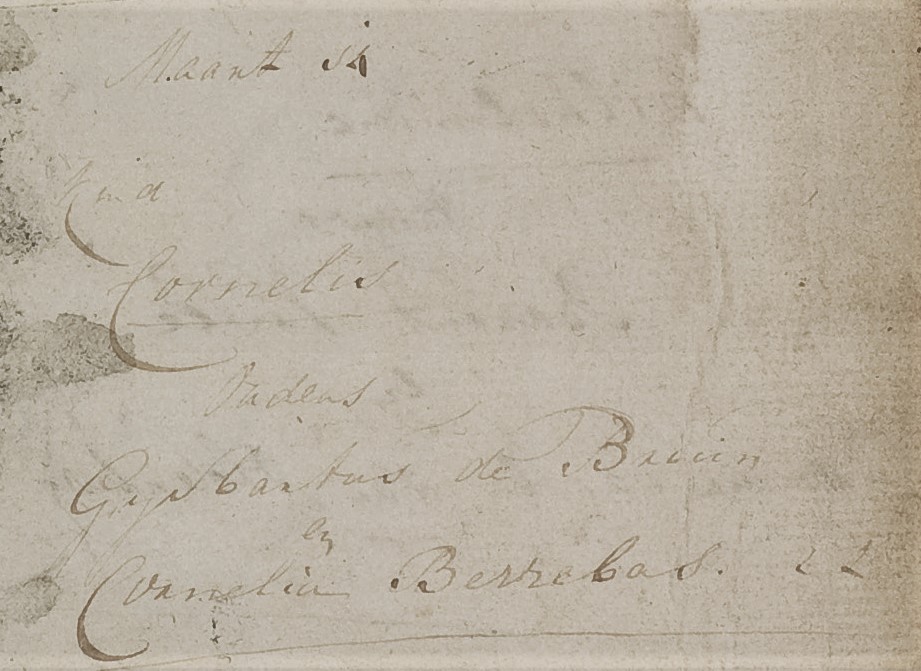 Maart 14
Kind
Cornelis
Ouders
Gysbartus de Bruin
en
Cornelia Berrebas.